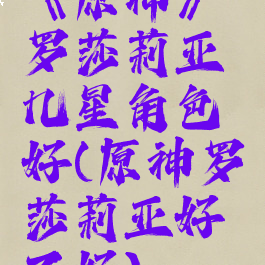 《原神》
罗莎莉亚
几星角色
好(原神罗
莎莉亚好
不好)